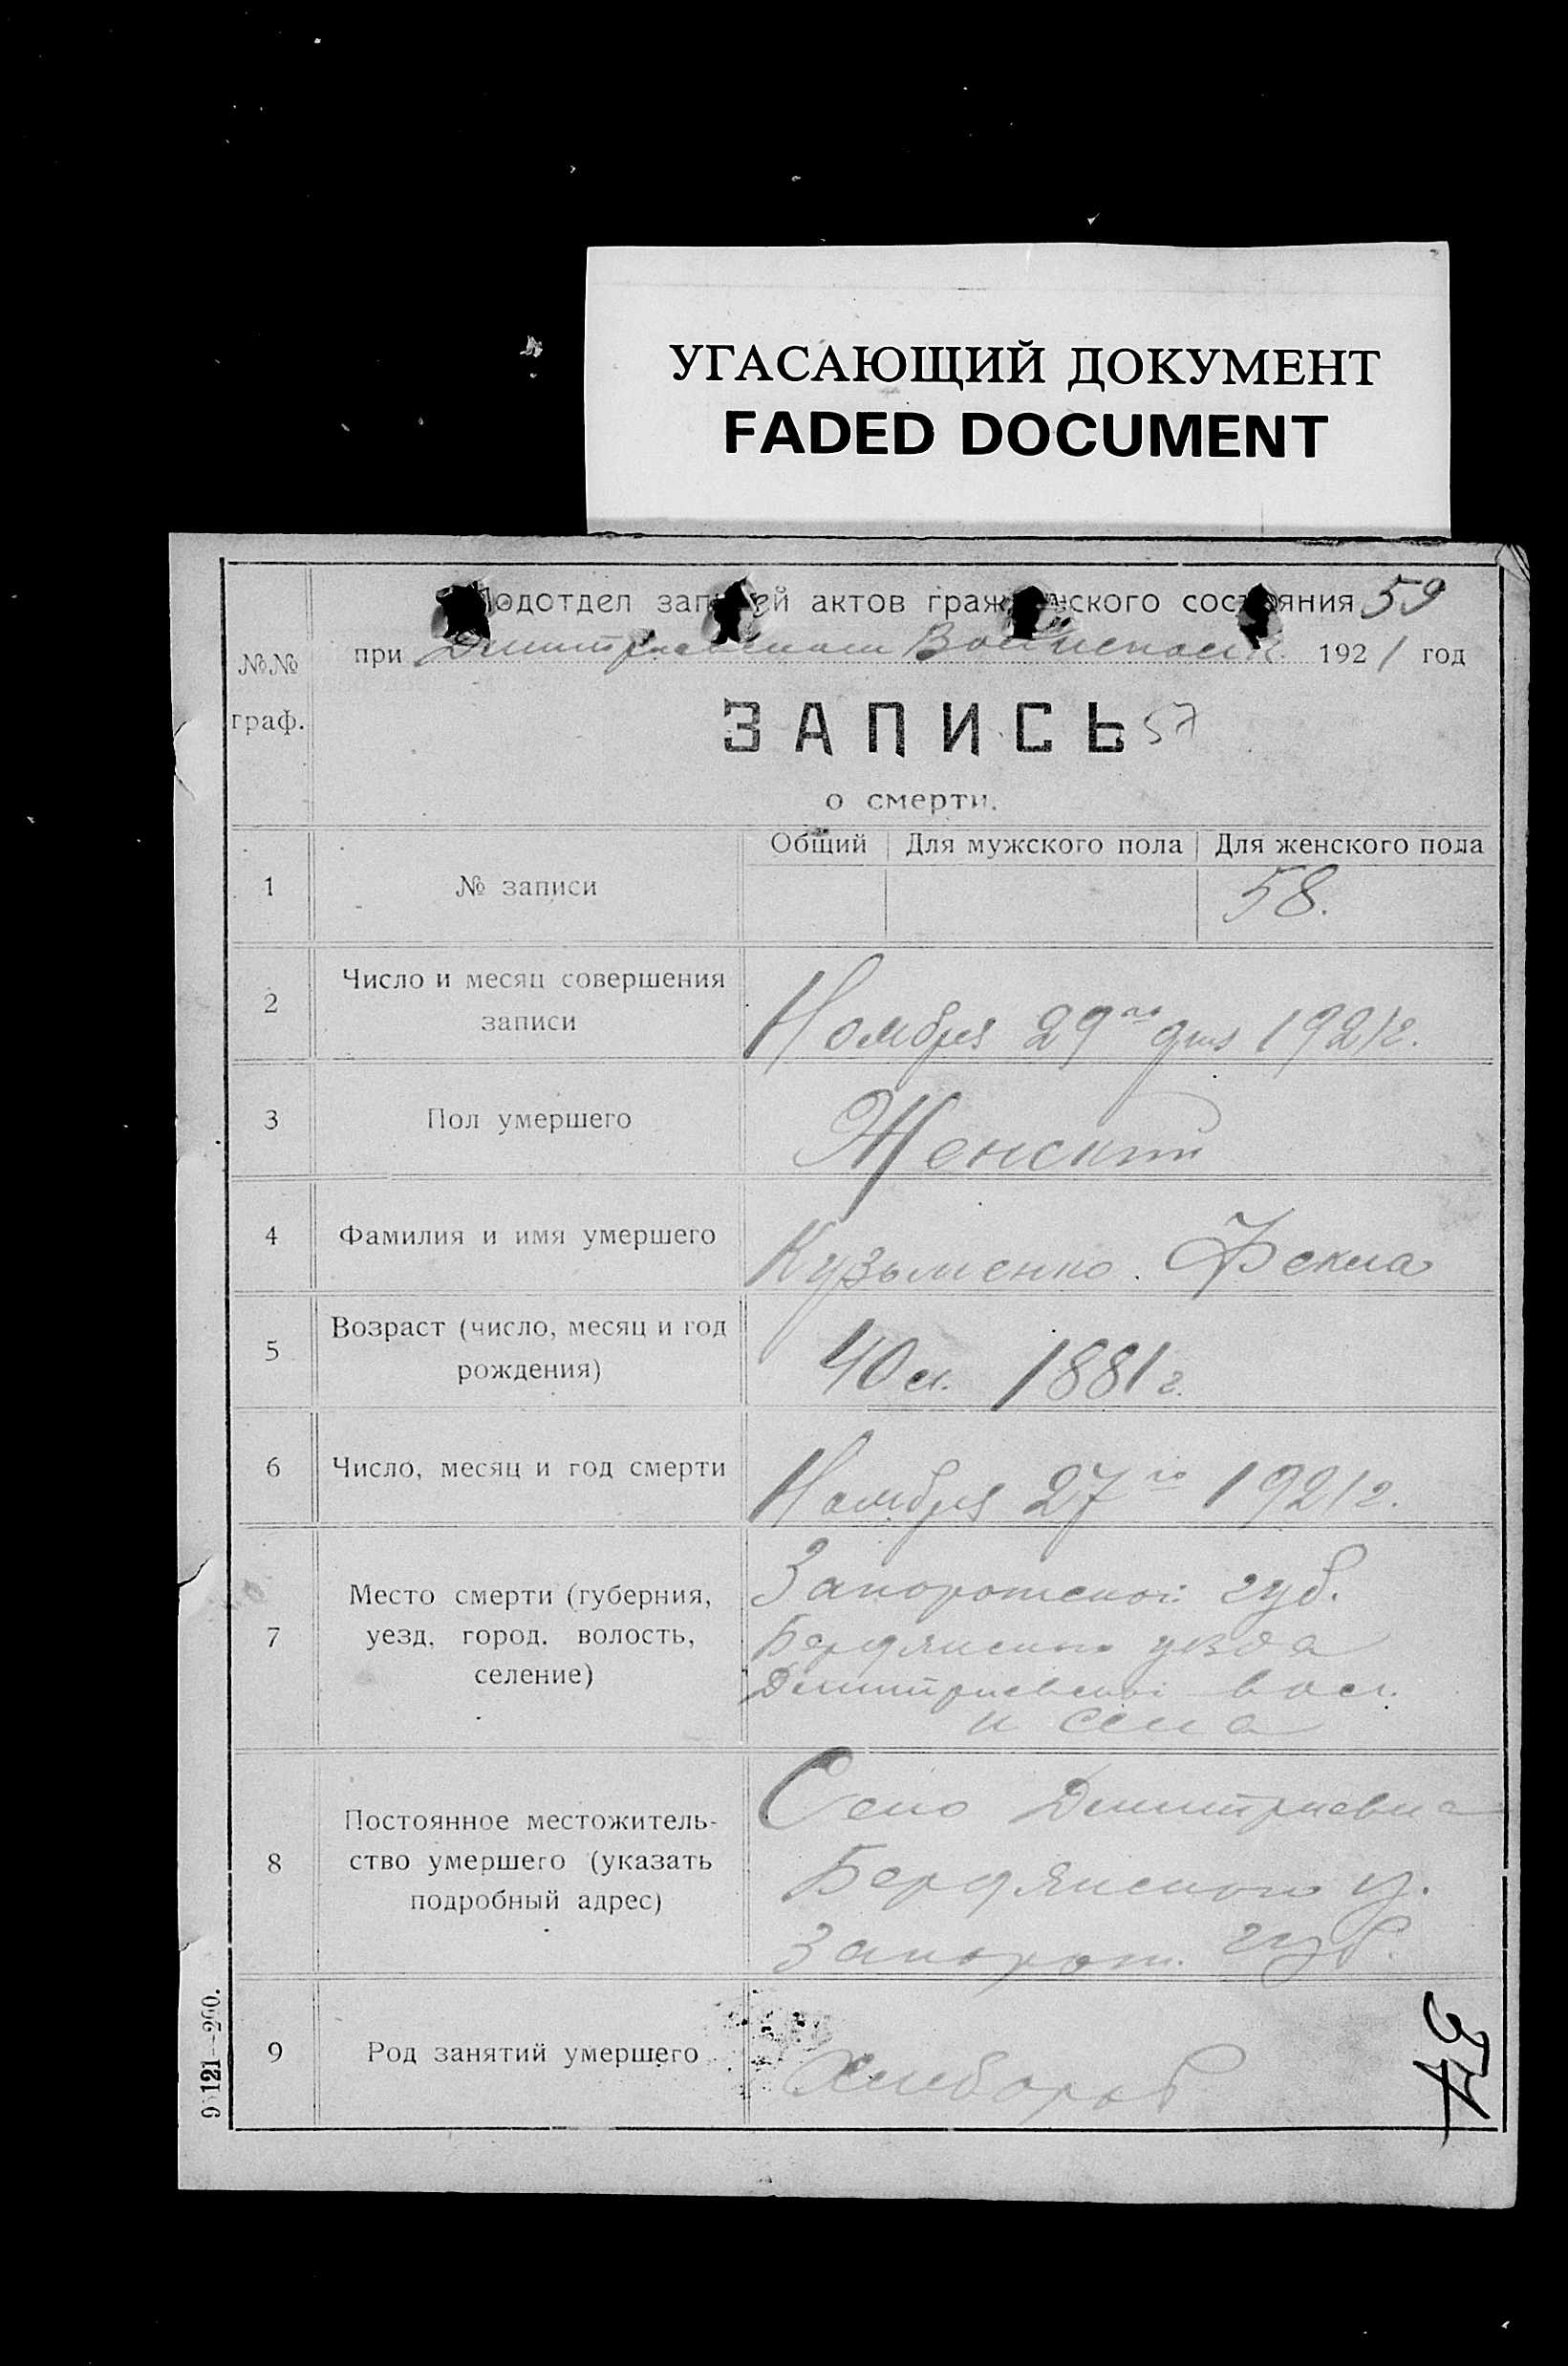 УГАСАЮЩИЙ ДОКУМЕНТ
FADED DOCUMENT
Подотдел записей актов гражданского состояния 59
при Дмитриевском 1921 год
№№
граф.
ЗАПИСЬ 57
о смерти.
Общий Для мужского пола Для женского пола
1 № записи 58.
2 Число и месяц совершения
записи
Ноября 29го дня 1921г.
3 Пол умершего Женский
4 Фамилия и имя умершего Кузьменко. Фекла
5 Возраст (число, месяц и год
рождения)
40 л. 1881 г.
6 Число, месяц и год смерти Ноября 27го 1921г.
7 Место смерти (губерния,
уезд, город, волость,
селение)
Запорожской губ.
Бердянского уезда
Дмитриевской вол.
и села
8 Постоянное местожитель-
ство умершего (указать
подробный адрес)
Село Дмитриевка
Бердянского у.
Запорож. губ.
9 Род занятий умершего Хлебороб
37
121—200.